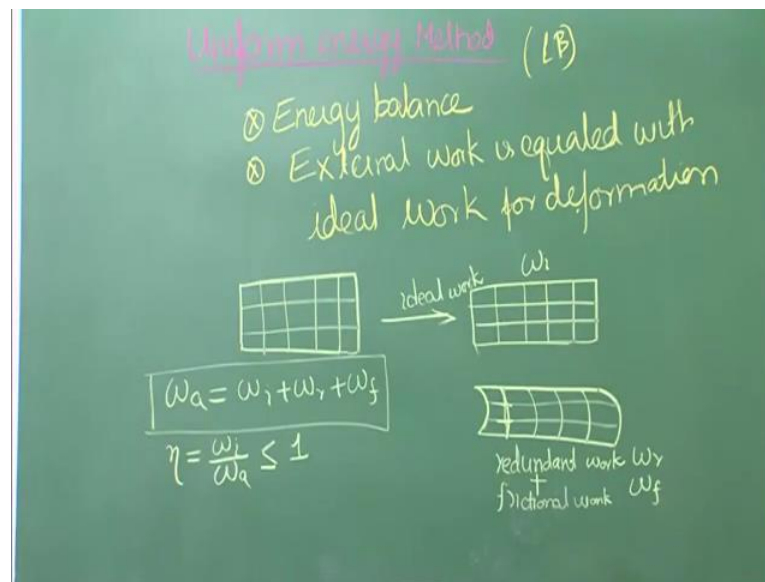 Uniform energy Method (LB)
⊗ Energy balance
⊗ External work is equaled with
ideal work for deformation
ideal work
ωi
ωa = ωi + ωr + ωf
η = ωi/ωa ≤ 1
redundant work ωr
+
frictional work ωf